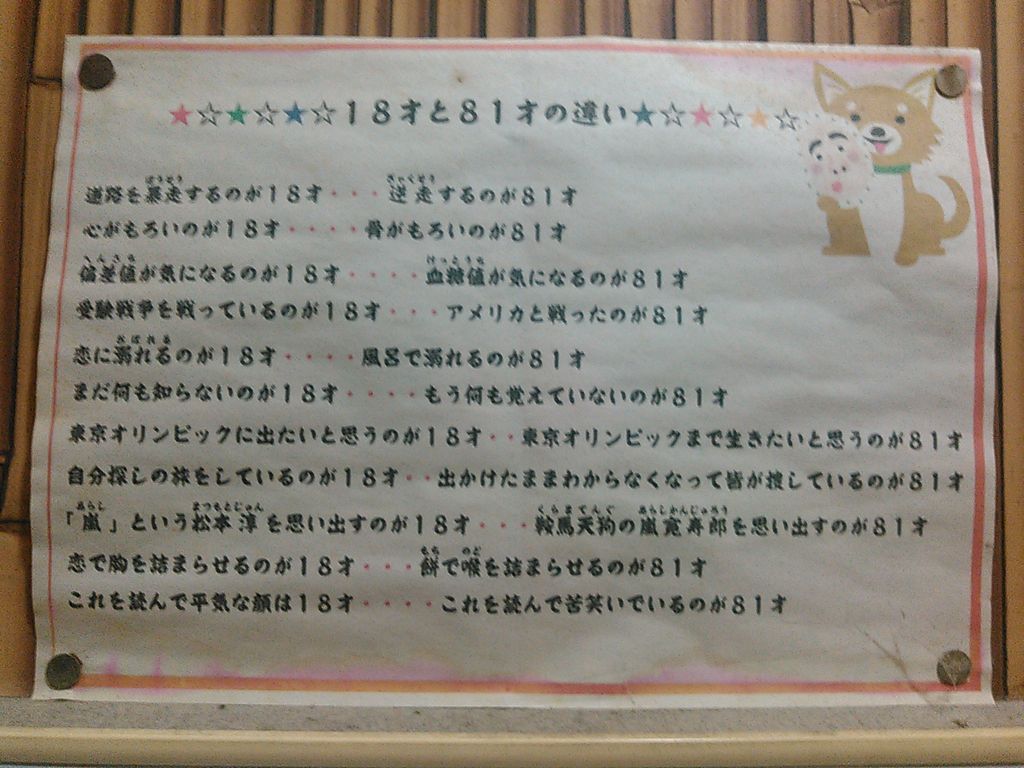 ★☆★☆★☆18才と81才の違い★☆★☆★☆
道路を暴走するのが18才・・・逆走するのが81才
心がもろいのが18才・・・・骨がもろいのが81才
偏差値が気になるのが18才・・・・血糖値が気になるのが81才
受験戦争を戦っているのが18才・・・アメリカと戦ったのが81才
恋に溺れるのが18才・・・・風呂で溺れるのが81才
まだ何も知らないのが18才・・・・もう何も覚えていないのが81才
東京オリンピックに出たいと思うのが18才・・東京オリンピックまで生きたいと思うのが81才
自分探しの旅をしているのが18才・・出かけたままわからなくなって皆が捜しているのが81才
「嵐」という松本淳を思い出すのが18才・・・鞍馬天狗の嵐寛寿郎を思い出すのが81才
恋で胸を詰まらせるのが18才・・・餅で喉を詰まらせるのが81才
これを読んで平気な顔は18才・・・・これを読んで苦笑いでいるのが81才